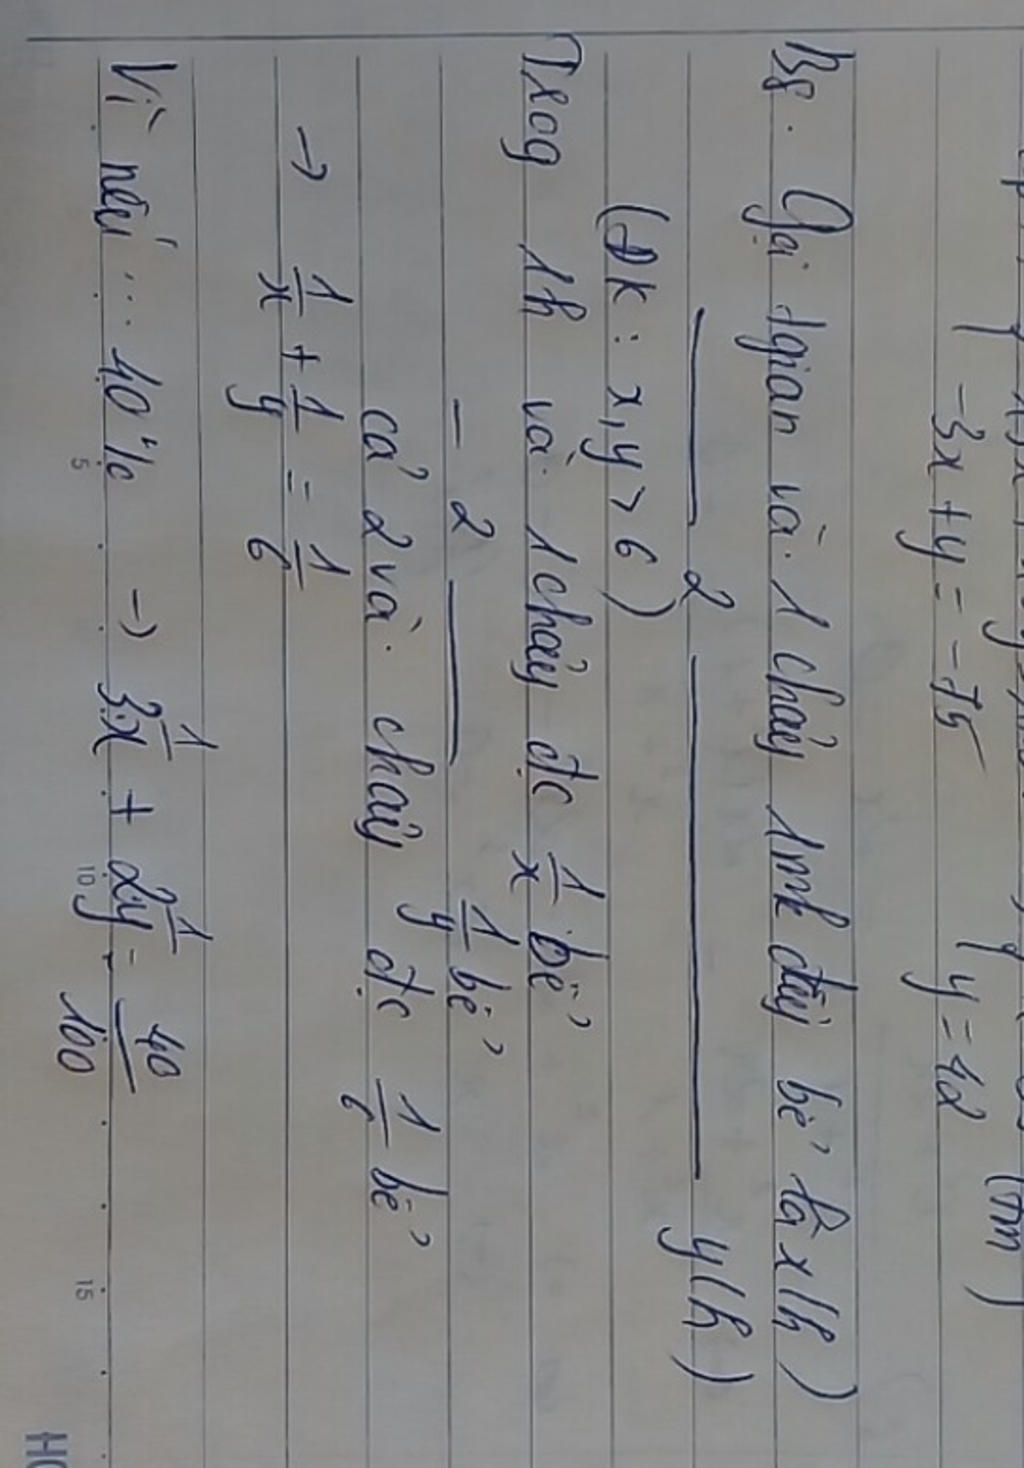 -3x + y = -75 y = 42 (tm)
B8. Gọi tgian vòi 1 chảy 1mk đầy bể là x (h)
2 y (h)
(ĐK: x, y > 6)
Trog 1h vòi 1 chảy đc 1/x bể
- 2 1/y bể
cả 2 vòi chảy đc 1/6 bể
→ 1/x + 1/y = 1/6
Vì nếu ... 40% → 3.1/x + 2.1/y = 40/100
5
10
15
HO